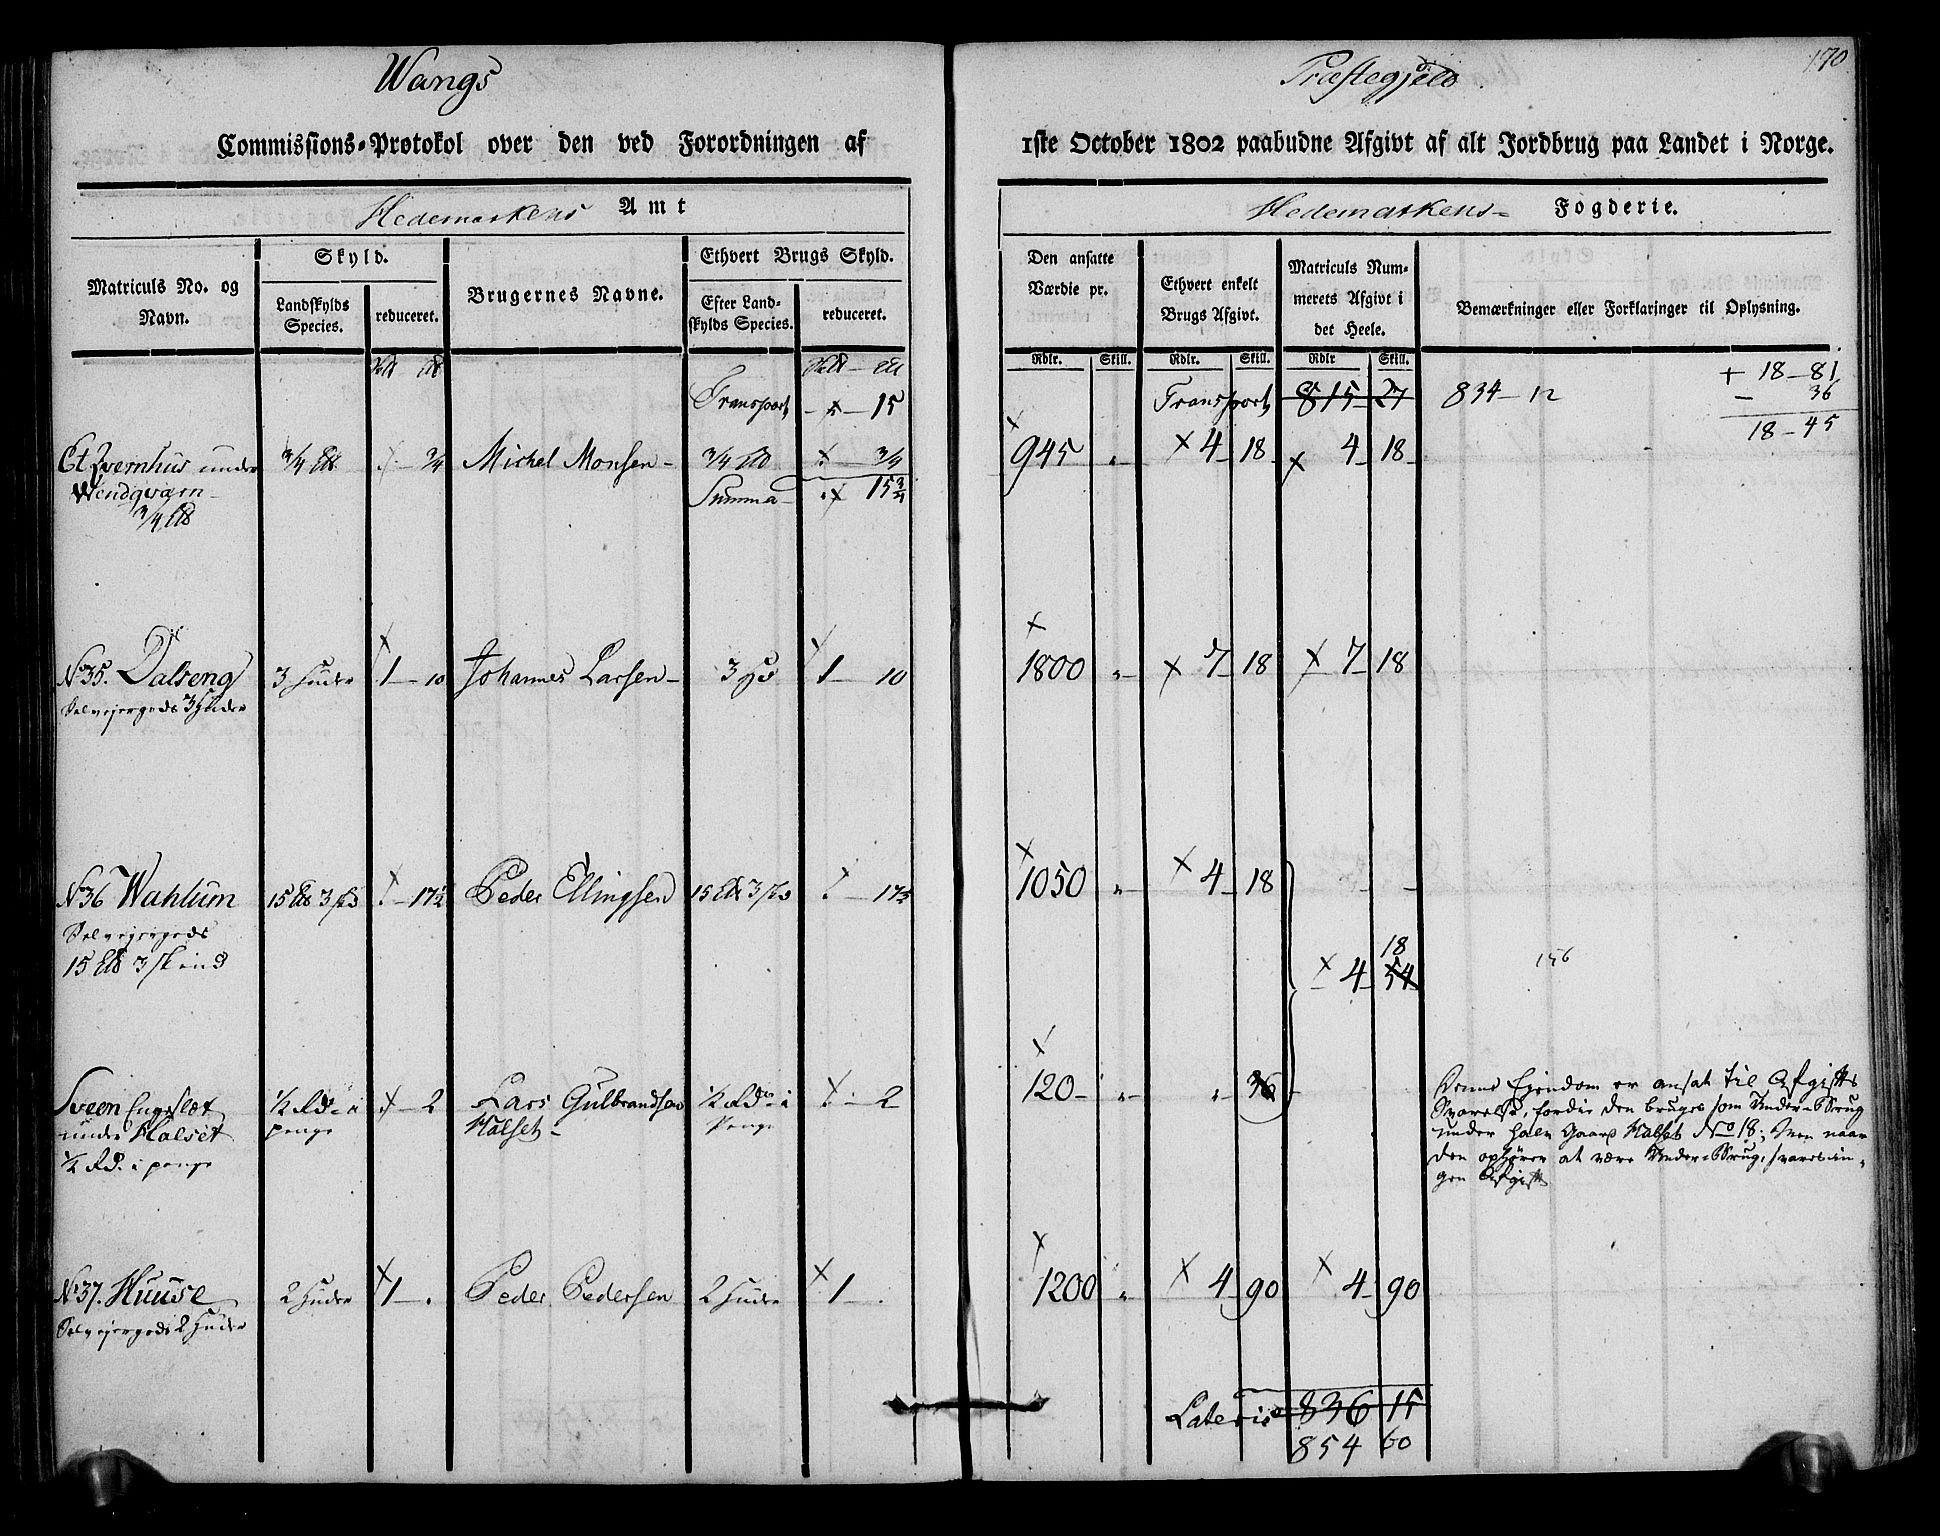 Wangs
Præstegjeld
170
Commissions-Protokol over den ved Forordningen af
1ste October 1802 paabudne Afgivt af alt Jordbrug paa Landet i Norge.
Hedemarkens Amt
Hedemarkens Fogderie.
Matriculs No. og Navn.
Skyld.
Landskylds Species.
reduceret.
Brugernes Navne.
Ethvert Brugs Skyld.
Efter Landskylds Species.
reduceret.
Den ansatte Værdie pr.
Ethvert enkelt Brugs Afgivt.
Matriculs Nummerets Afgivt i det Heele.
Bemærkninger eller Forklaringer til Oplysning.
Rdlr. Skill. Rdlr. Skill. Rdlr Skill.
Transport 15
Transport 815 27 834 - 12
+ 18 - 81
- 36
18 - 45
Et Qvernhus under 3/4 3/4 Michel Monsen 3/4 3/4 945 4 18 4 18
Wendqværn
3/4
Summa 15 3/4
No 35. Dalseng 3 Huder 1 - 10 Johannes Larsen 3 1 - 10 1800 7 18 7 18
Selvejergods 3 Huder
No 36 Wahlum 15 3 17 1/2 Peder Ellingsen 15 3 17 1/2 1050 4 18
Selvejergods
15 3 skind
18
4 54
156
Sveen Engslæt 1/2 Rd. i penge 2 Lars Gulbrandsen Halset 1/2 Rd. i penge 2 120 36
under Halset
1/2 Rd. i penge
Denne Ejendom er ansat til Afgifts
Svarelse, fordie den bruges som Under-Brug
under Gaard Halset No 18; Men naar
den ophører at være Under-Brug, svares in-
gen Afgift
No 37. Huuse 2 Huder 1 Peder Pedersen 2 Huder 1 1200 4 90 4 90
Selvejergods 2 Huder
Lateris 836 15
854 60